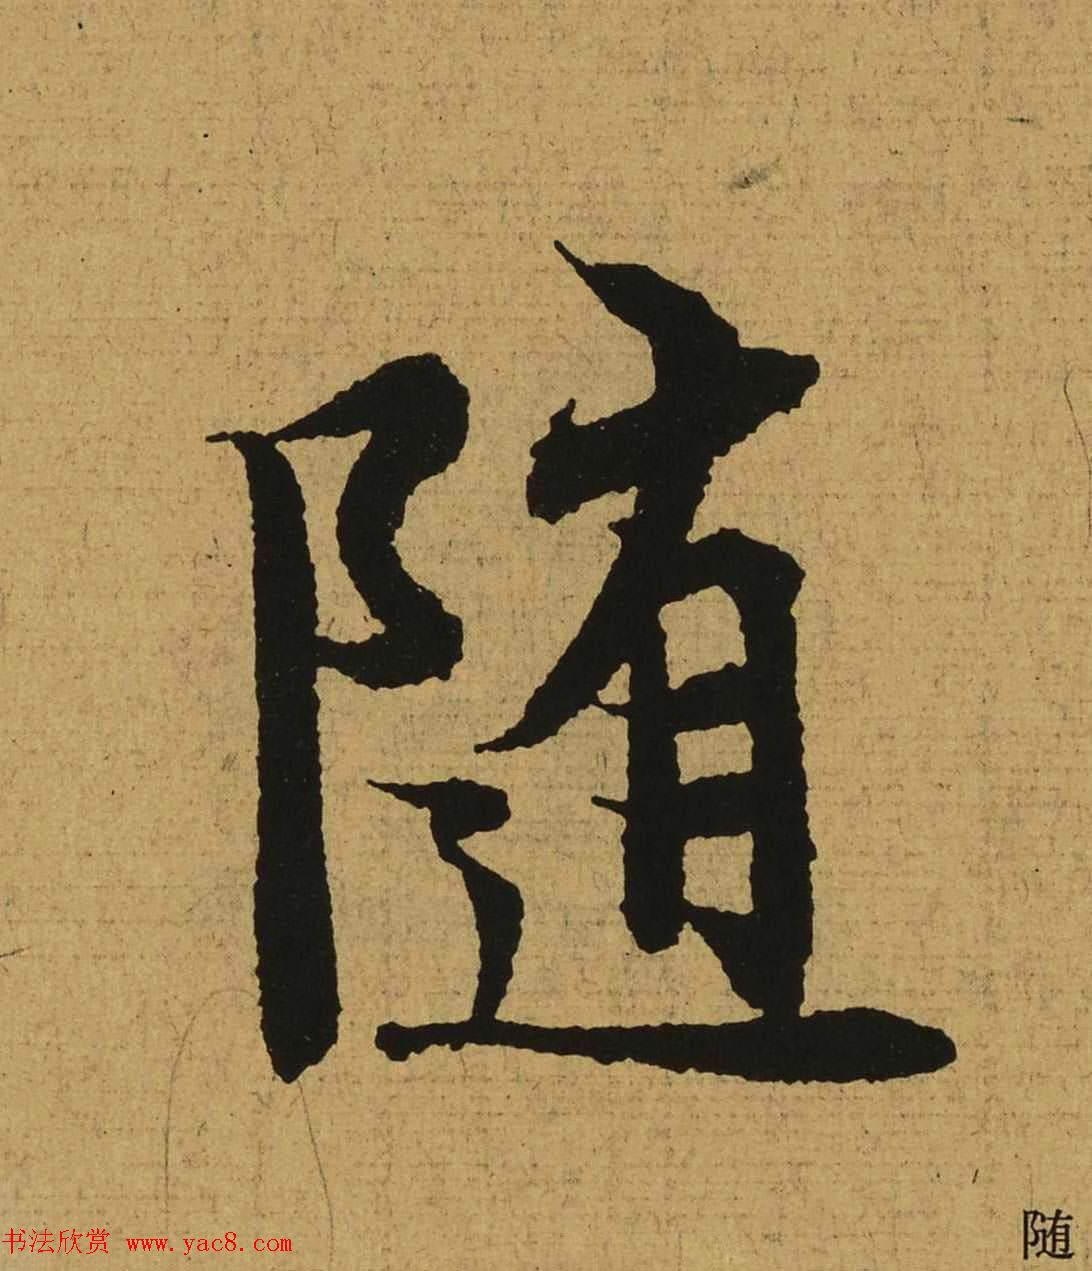 随
书法欣赏 www.yac8.com
随